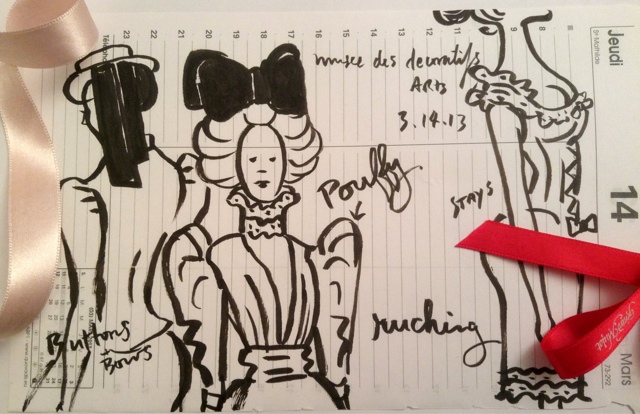 musee des decoratifs
ARTS
3.14.13
Pouffy
STAYS
ruching
Buttons
+ Bows
Jeudi
Ste Mathilde
14
Mars
73-292
8
9
10
11
12
13
14
15
16
17
18
19
20
21
22
23